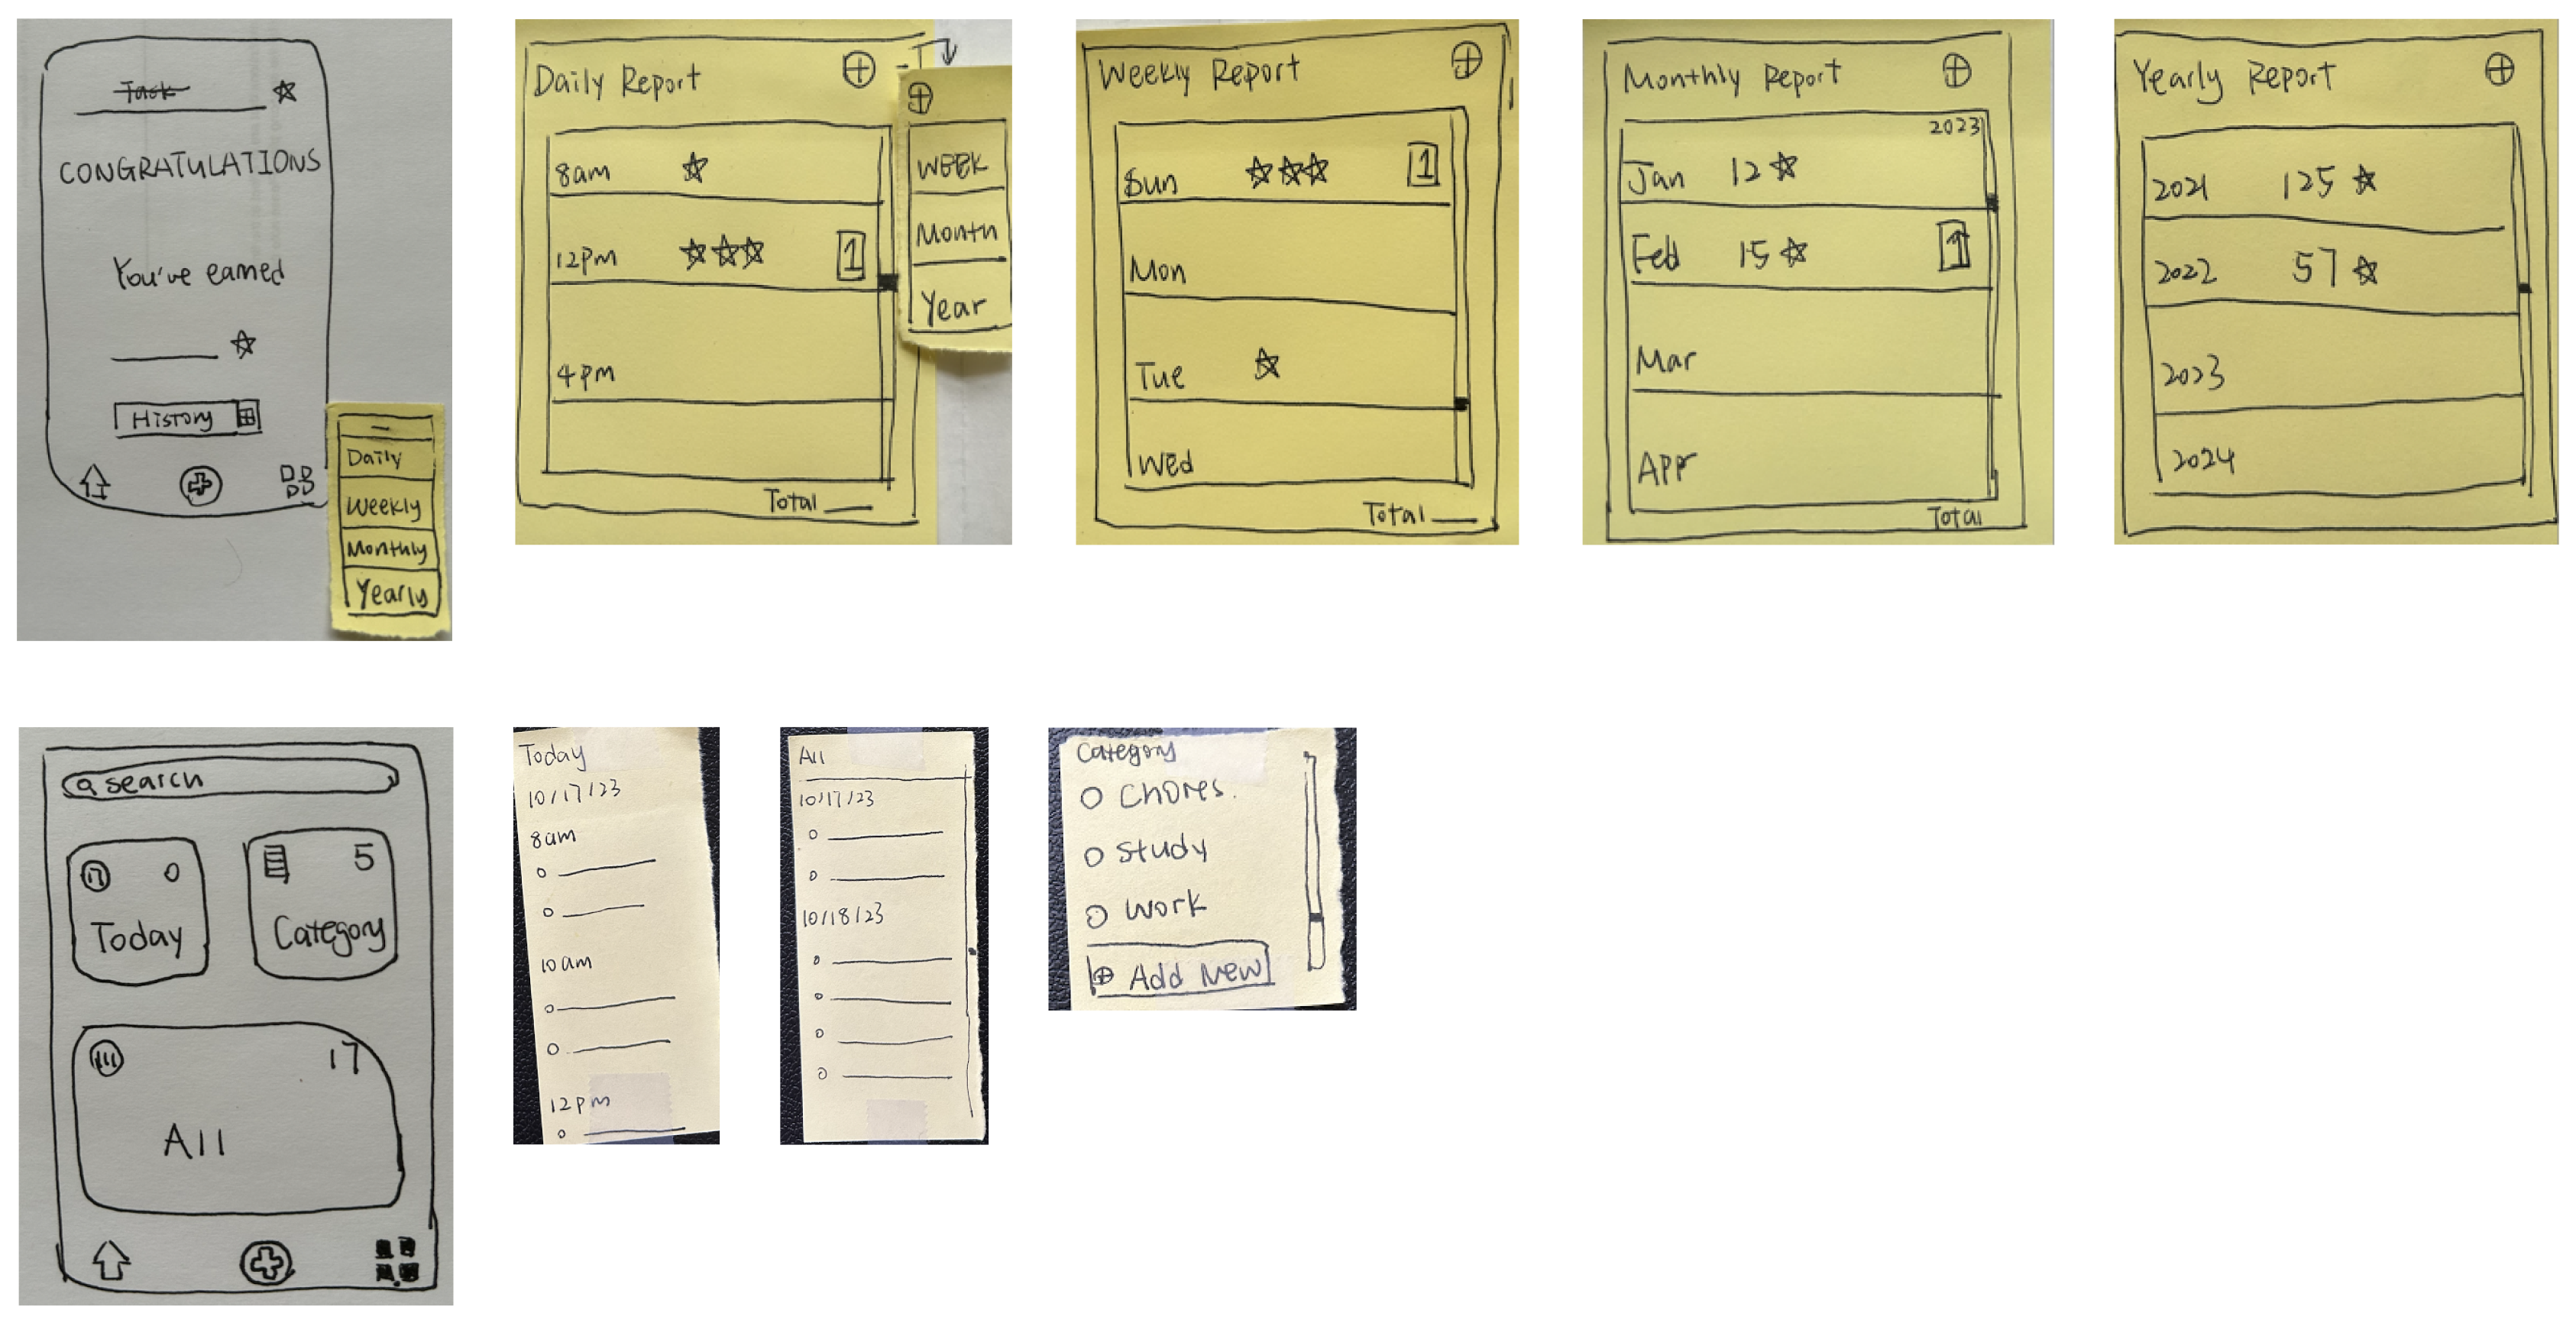 Task
CONGRATULATIONS
You've earned
History
Daily
Weekly
Monthly
Yearly
Daily Report
8am
12pm 1
4pm
Total
WEEK
Month
Year
Weekly Report
Sun 1
Mon
Tue
Wed
Total
Monthly Report
2023
Jan 12
Feb 15 1
Mar
Apr
Total
Yearly Report
2021 125
2022 57
2023
2024
search
17 0
Today
5
Category
17
All
Today
10/17/23
8am
10am
12pm
All
10/17/23
10/18/23
Category
Chores.
Study
Work
Add New